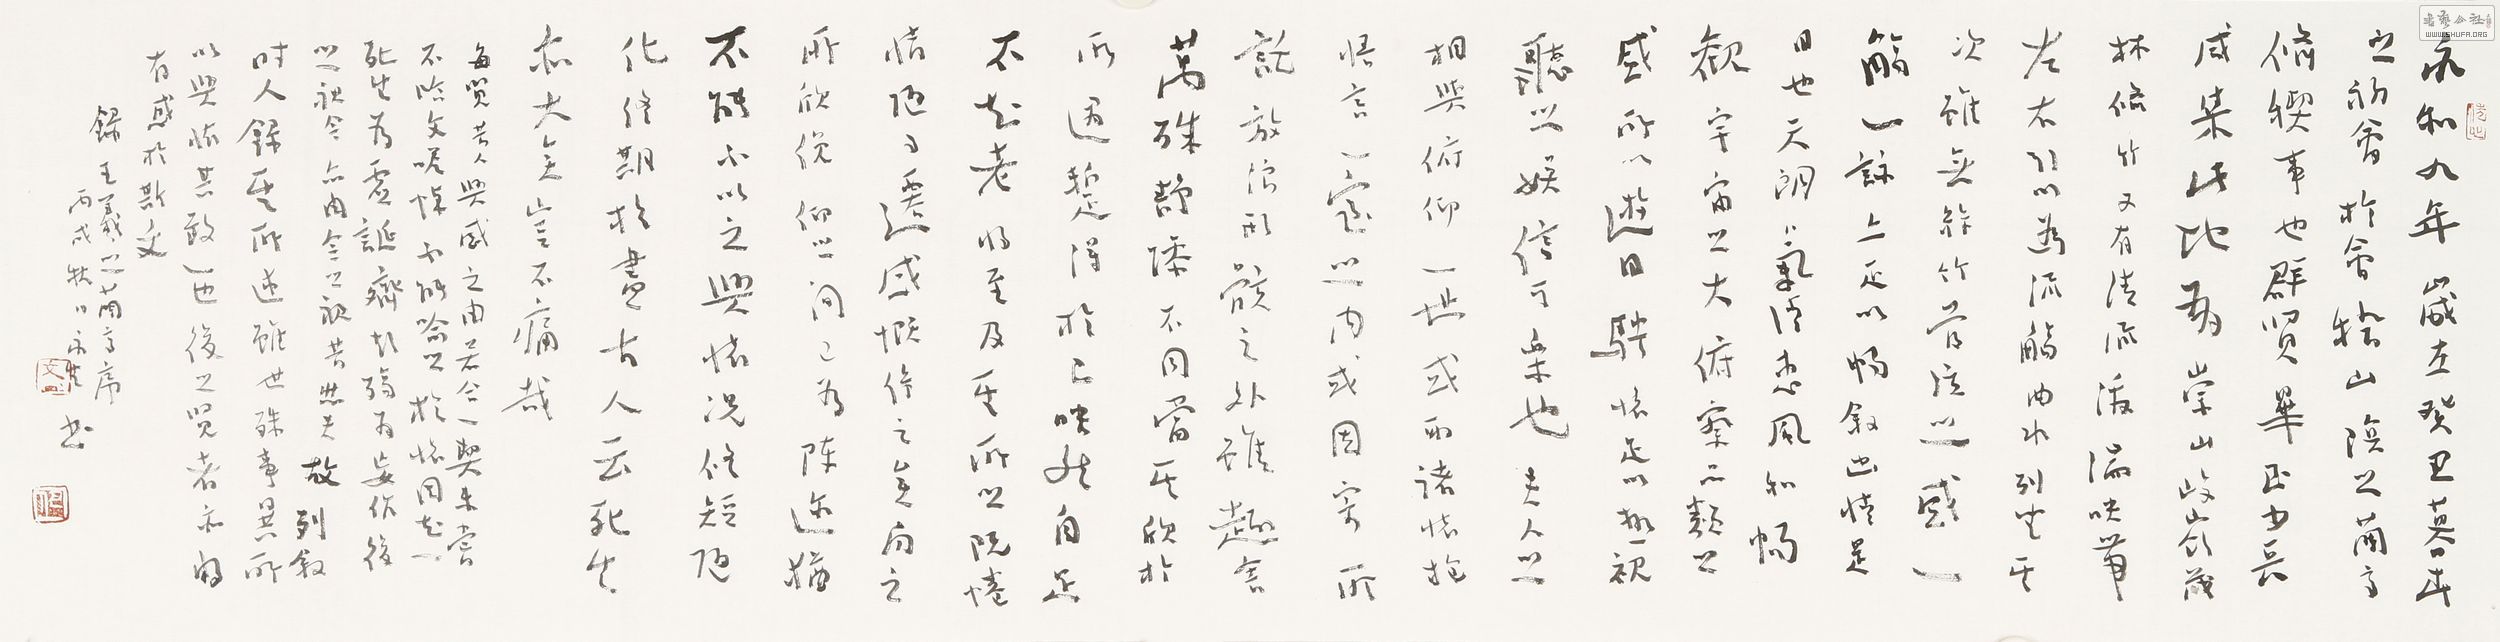 永和九年歲在癸丑暮春
之初會於會稽山陰之蘭亭
脩稧事也群賢畢至少長
咸集此地有崇山峻嶺茂
林脩竹又有清流激湍映帶
左右引以為流觴曲水列坐其
次雖無絲竹管弦之盛一
觴一詠亦足以暢敘幽情是
日也天朗氣清惠風和暢
觀宇宙之大俯察品類之
盛所以遊目騁懷足以極視
聽之娛信可樂也夫人之
相與俯仰一世或取諸懷抱
悟言一室之內或因寄所
託放浪形骸之外雖趣舍
萬殊靜躁不同當其欣於
所遇暫得於己快然自足
不知老將至及其所之既惓
情隨事遷感慨係之矣向之
所欣俛仰之間已為陳迹猶
不能不以之興懷況脩短隨
化終期於盡古人云死生
亦大矣豈不痛哉
每覽昔人興感之由若合一契未嘗
不臨文嗟悼不能喻之於懷固知一
死生為虛誕齊彭殤為妄作後
之視今亦由今之視昔悲夫故列敘
時人錄其所述雖世殊事異所
以興懷其致一也後之覽者亦由
有感於斯文
錄王羲之蘭亭序
丙戌秋日 書
書藝公社
WWW.SHUFA.ORG